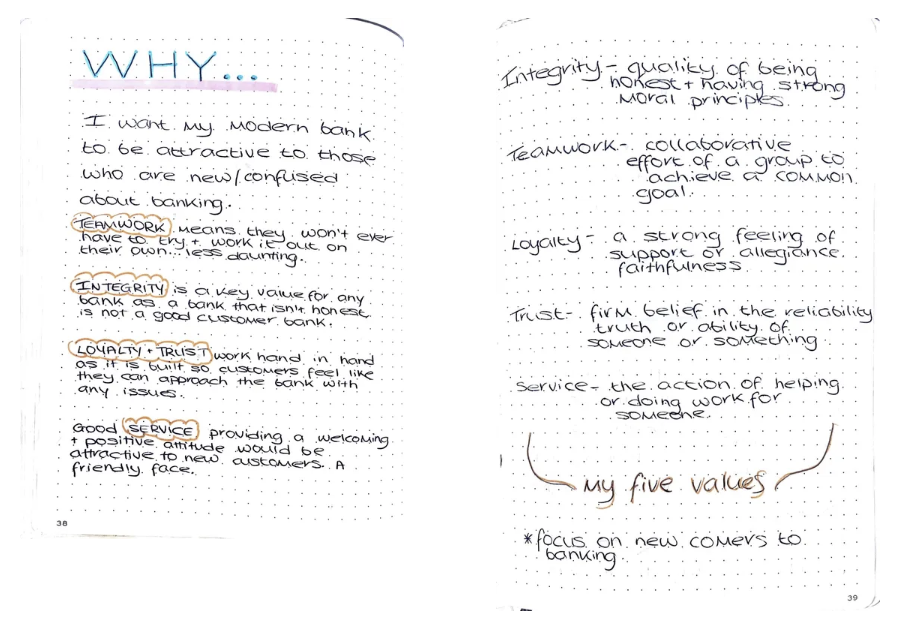 WHY...
I want my modern bank
to be attractive to those
who are new/confused
about banking.
TEAMWORK means they won't ever
have to try + work it out on
their own... less daunting.
INTEGRITY is a key value for any
bank as a bank that isn't honest
is not a good customer bank.
LOYALTY + TRUST work hand in hand
as it is built so customers feel like
they can approach the bank with
any issues.
Good SERVICE providing a welcoming
+ positive attitude would be
attractive to new customers. A
friendly face.
38
Integrity - quality of being
honest + having strong
moral principles
Teamwork - collaborative
effort of a group to
achieve a common
goal.
Loyalty - a strong feeling of
support or allegiance.
faithfulness
Trust - firm belief in the reliability
truth or ability of
someone or something
Service - the action of helping
or doing work for
someone.
My five values
*focus on new comers to
banking.
39